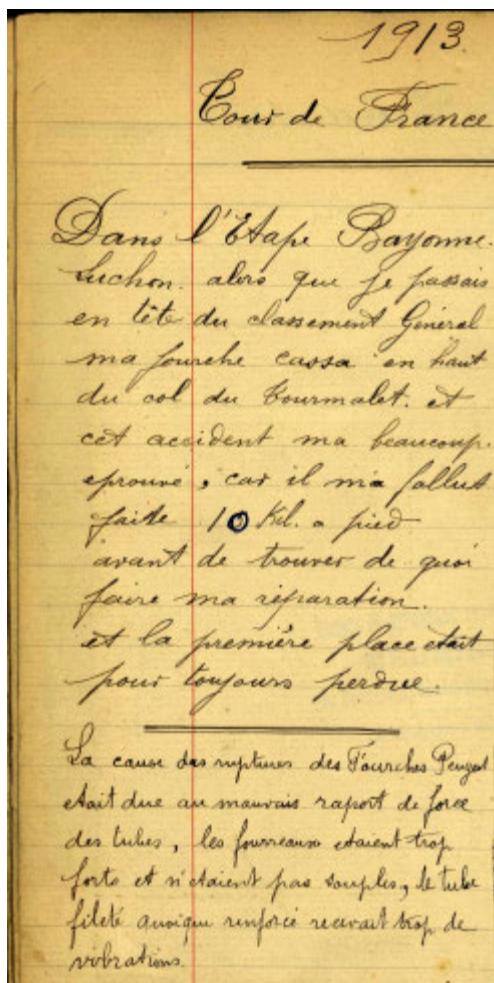 1913.
Tour de France
Dans l'Etape Bayonne.
Luchon. alors que je passais
en tête du classement Général
ma fourche cassa en haut
du col du Tourmalet. et
cet accident ma beaucoup.
eprouvé, car il m'a fallut
faite 10 Kil. a pied
avant de trouver de quoi
faire ma réparation.
et la première place etait
pour toujours perdue.
La cause des ruptures des Fourches Peugeot
etait due au mauvais raport de force
des tubes, les fourreaux etaient trop
forts et n'etaient pas souples, le tube
fileté quoique renforcé recevait trop de
vibrations.